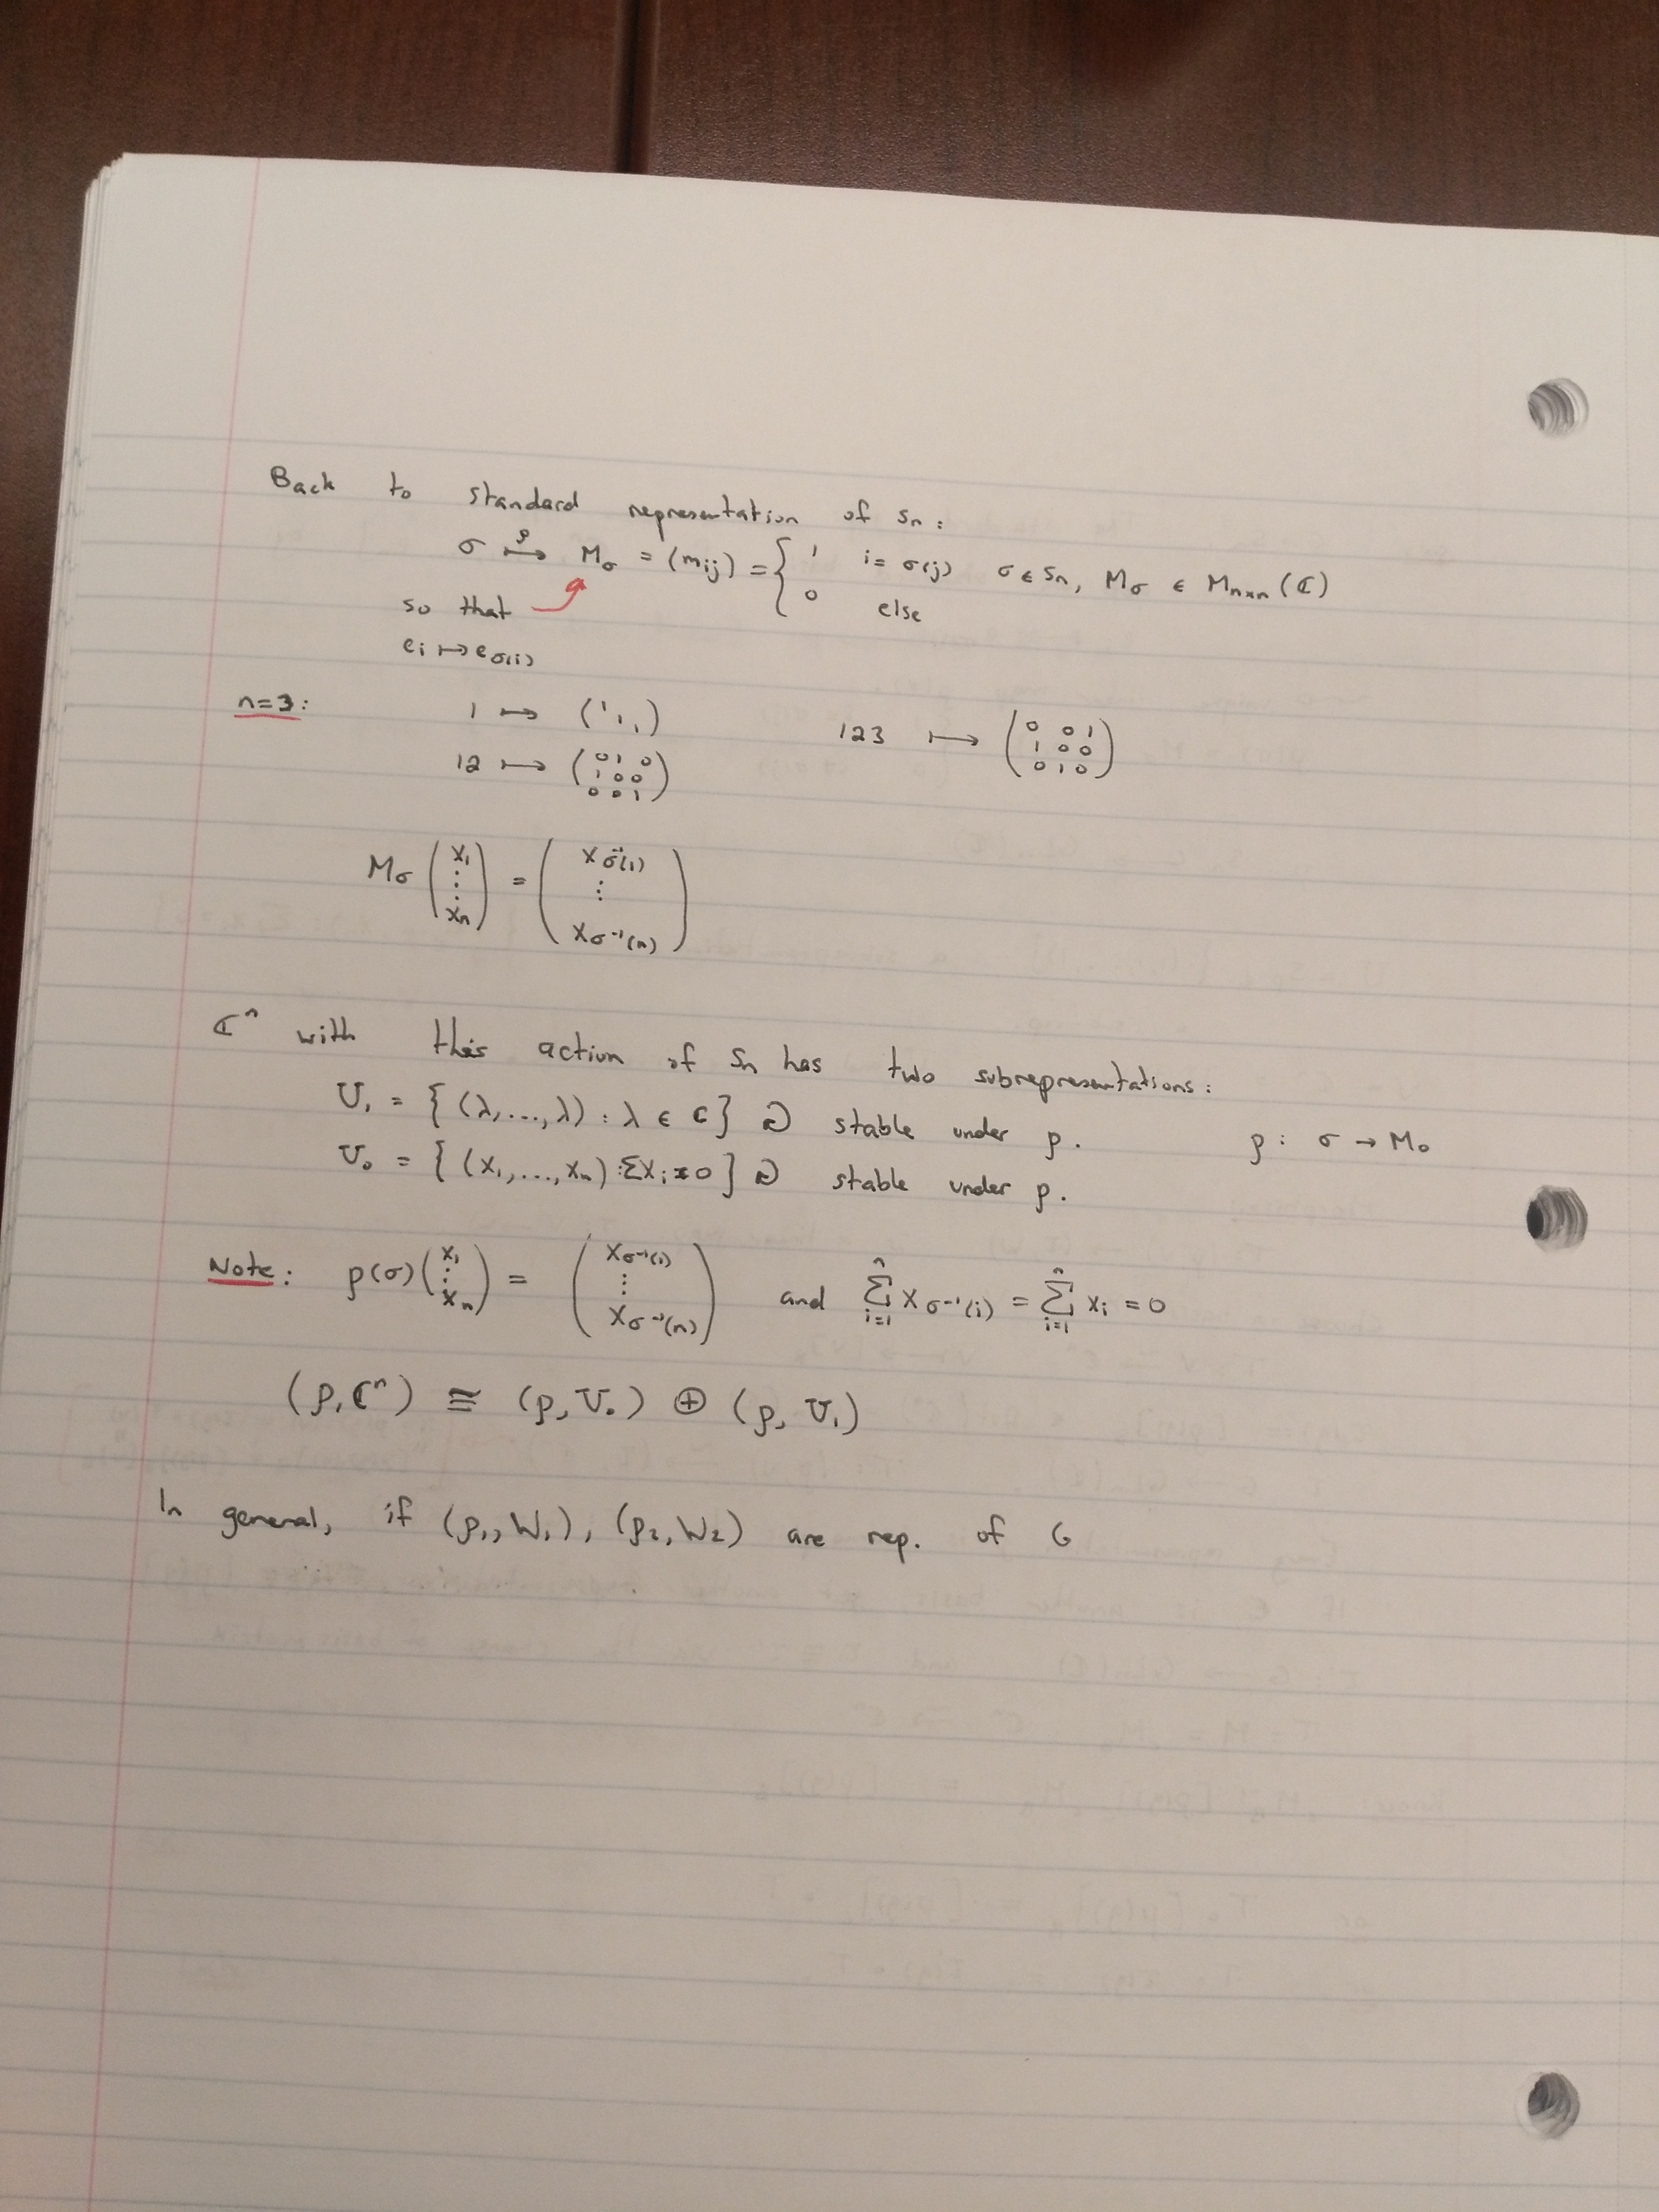 Back to standard representation of Sn:
σ ↦^ρ Mσ = (mij) = { 1 i = σ(j) σ ∈ Sn, Mσ ∈ Mn×n(ℂ)
0 else
so that
ei ↦ eσ(i)
n=3:
1 ↦ (1 1 1)
123 ↦ (0 0 1
1 0 0
0 1 0)
12 ↦ (0 1 0
1 0 0
0 0 1)
Mσ (x1 ⋮ xn) = (xσ⁻¹(1) ⋮ xσ⁻¹(n))
ℂⁿ with this action of Sn has two subrepresentations:
U1 = {(λ,...,λ) : λ ∈ ℂ} stable under ρ. ρ: σ → Mσ
U0 = {(x1,...,xn) : Σxi = 0} stable under ρ.
Note: ρ(σ)(x1 ⋮ xn) = (xσ⁻¹(1) ⋮ xσ⁻¹(n)) and Σ_{i=1}^n xσ⁻¹(i) = Σ_{i=1}^n xi = 0
(ρ, ℂⁿ) ≅ (ρ, U0) ⊕ (ρ, U1)
In general, if (ρ1, W1), (ρ2, W2) are rep. of G